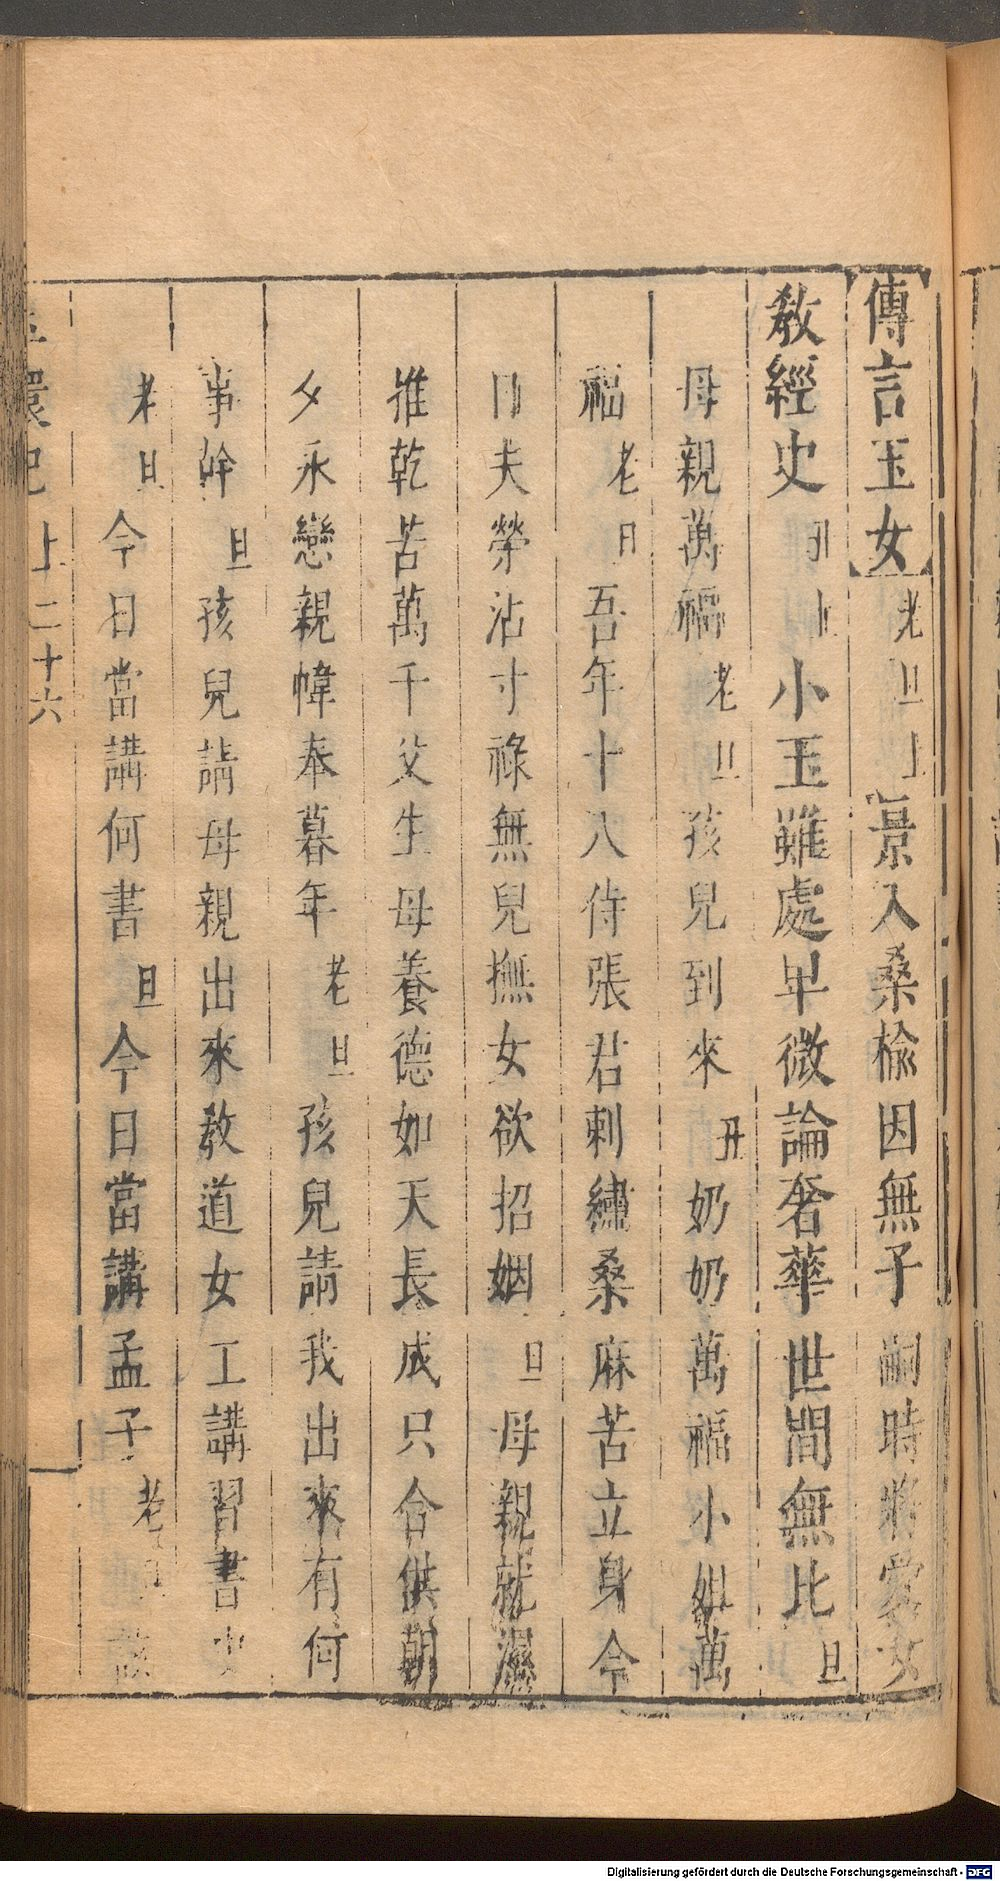 傳言玉女老旦上景入桑榆因無子嗣時將愛女
教經史旦上小玉雖處卑微論奢華世間無比旦
母親萬福老旦孩兒到來丑奶奶萬福小姐萬
福老旦吾年十八侍張君刺繡桑麻苦立身今
日夫榮沾寸祿無兒撫女欲招姻旦母親就濕
推乾苦萬千父生母養德如天長成只合供朝
夕永戀親幃奉暮年老旦孩兒請我出來有何
事幹旦孩兒請母親出來教道女工講習書史
老旦今日當講何書旦今日當講孟子老旦該
環記 上 二十六
Digitalisierung gefördert durch die Deutsche Forschungsgemeinschaft - DFG